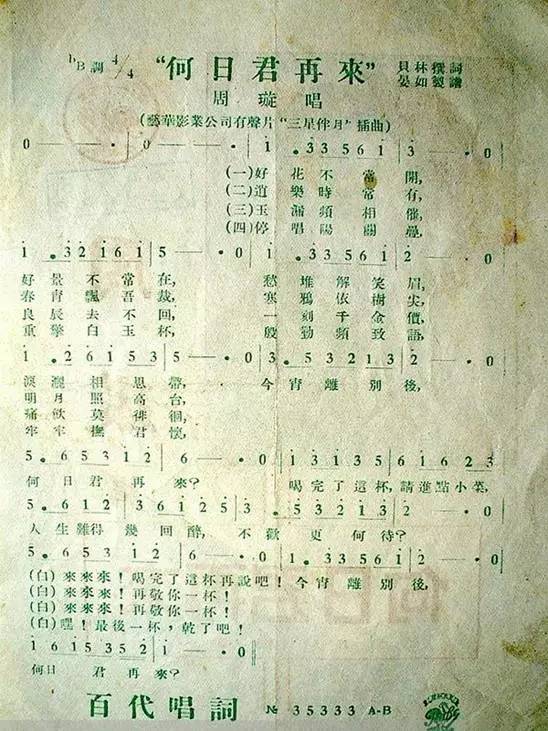 ᵇB調 4/4 “何日君再來” 貝林撰詞
晏如製譜
周璇唱
(藝華影業公司有聲片“三星伴月”插曲)
0 — — 0 — — 0 1. 3 3 5 6 1 3 — · 0
(一)好花不常開,
(二)逍樂時常有,
(三)玉漏頻相催,
(四)停唱陽關疊,
1 . 3 2 1 6 1 5 — · 0 1 . 3 3 5 6 1 2 — · 0
好景不常在, 愁堆解笑眉,
春宵飄吾裁, 寒鴉依樹尖,
良辰去不回, 一刻千金價,
重擎白玉杯, 殷勤頻致語,
1 . 2 6 1 5 3 5 — · 0 3 . 5 3 2 1 3 2 — · 0
淚灑相思帶, 今宵離別後,
明月照高台,
痛飲莫徘徊,
牢牢撫君懷,
5 . 6 5 3 1 2 6 — · 0 1 3 1 3 5 6 1 6 2 3
何日君再來? 喝完了這杯,請進點小菜,
5 . 6 1 2 3 6 1 2 3 5 3 . 5 3 2 1 3 2
人生難得幾回醉, 不歡更何待?
5 . 6 5 3 1 2 6 — · 0 1 . 3 3 5 6 1 2 — · 0
(白)來來來!喝完了這杯再說吧!今宵離別後,
(白)來來來!再敬你一杯!
(白)來來來!再敬你一杯!
(白)嘿!最後一杯,乾了吧!
1 6 1 5 3 5 2 1 — · 0
何日君再來?
百代唱詞 № 35333 A-B